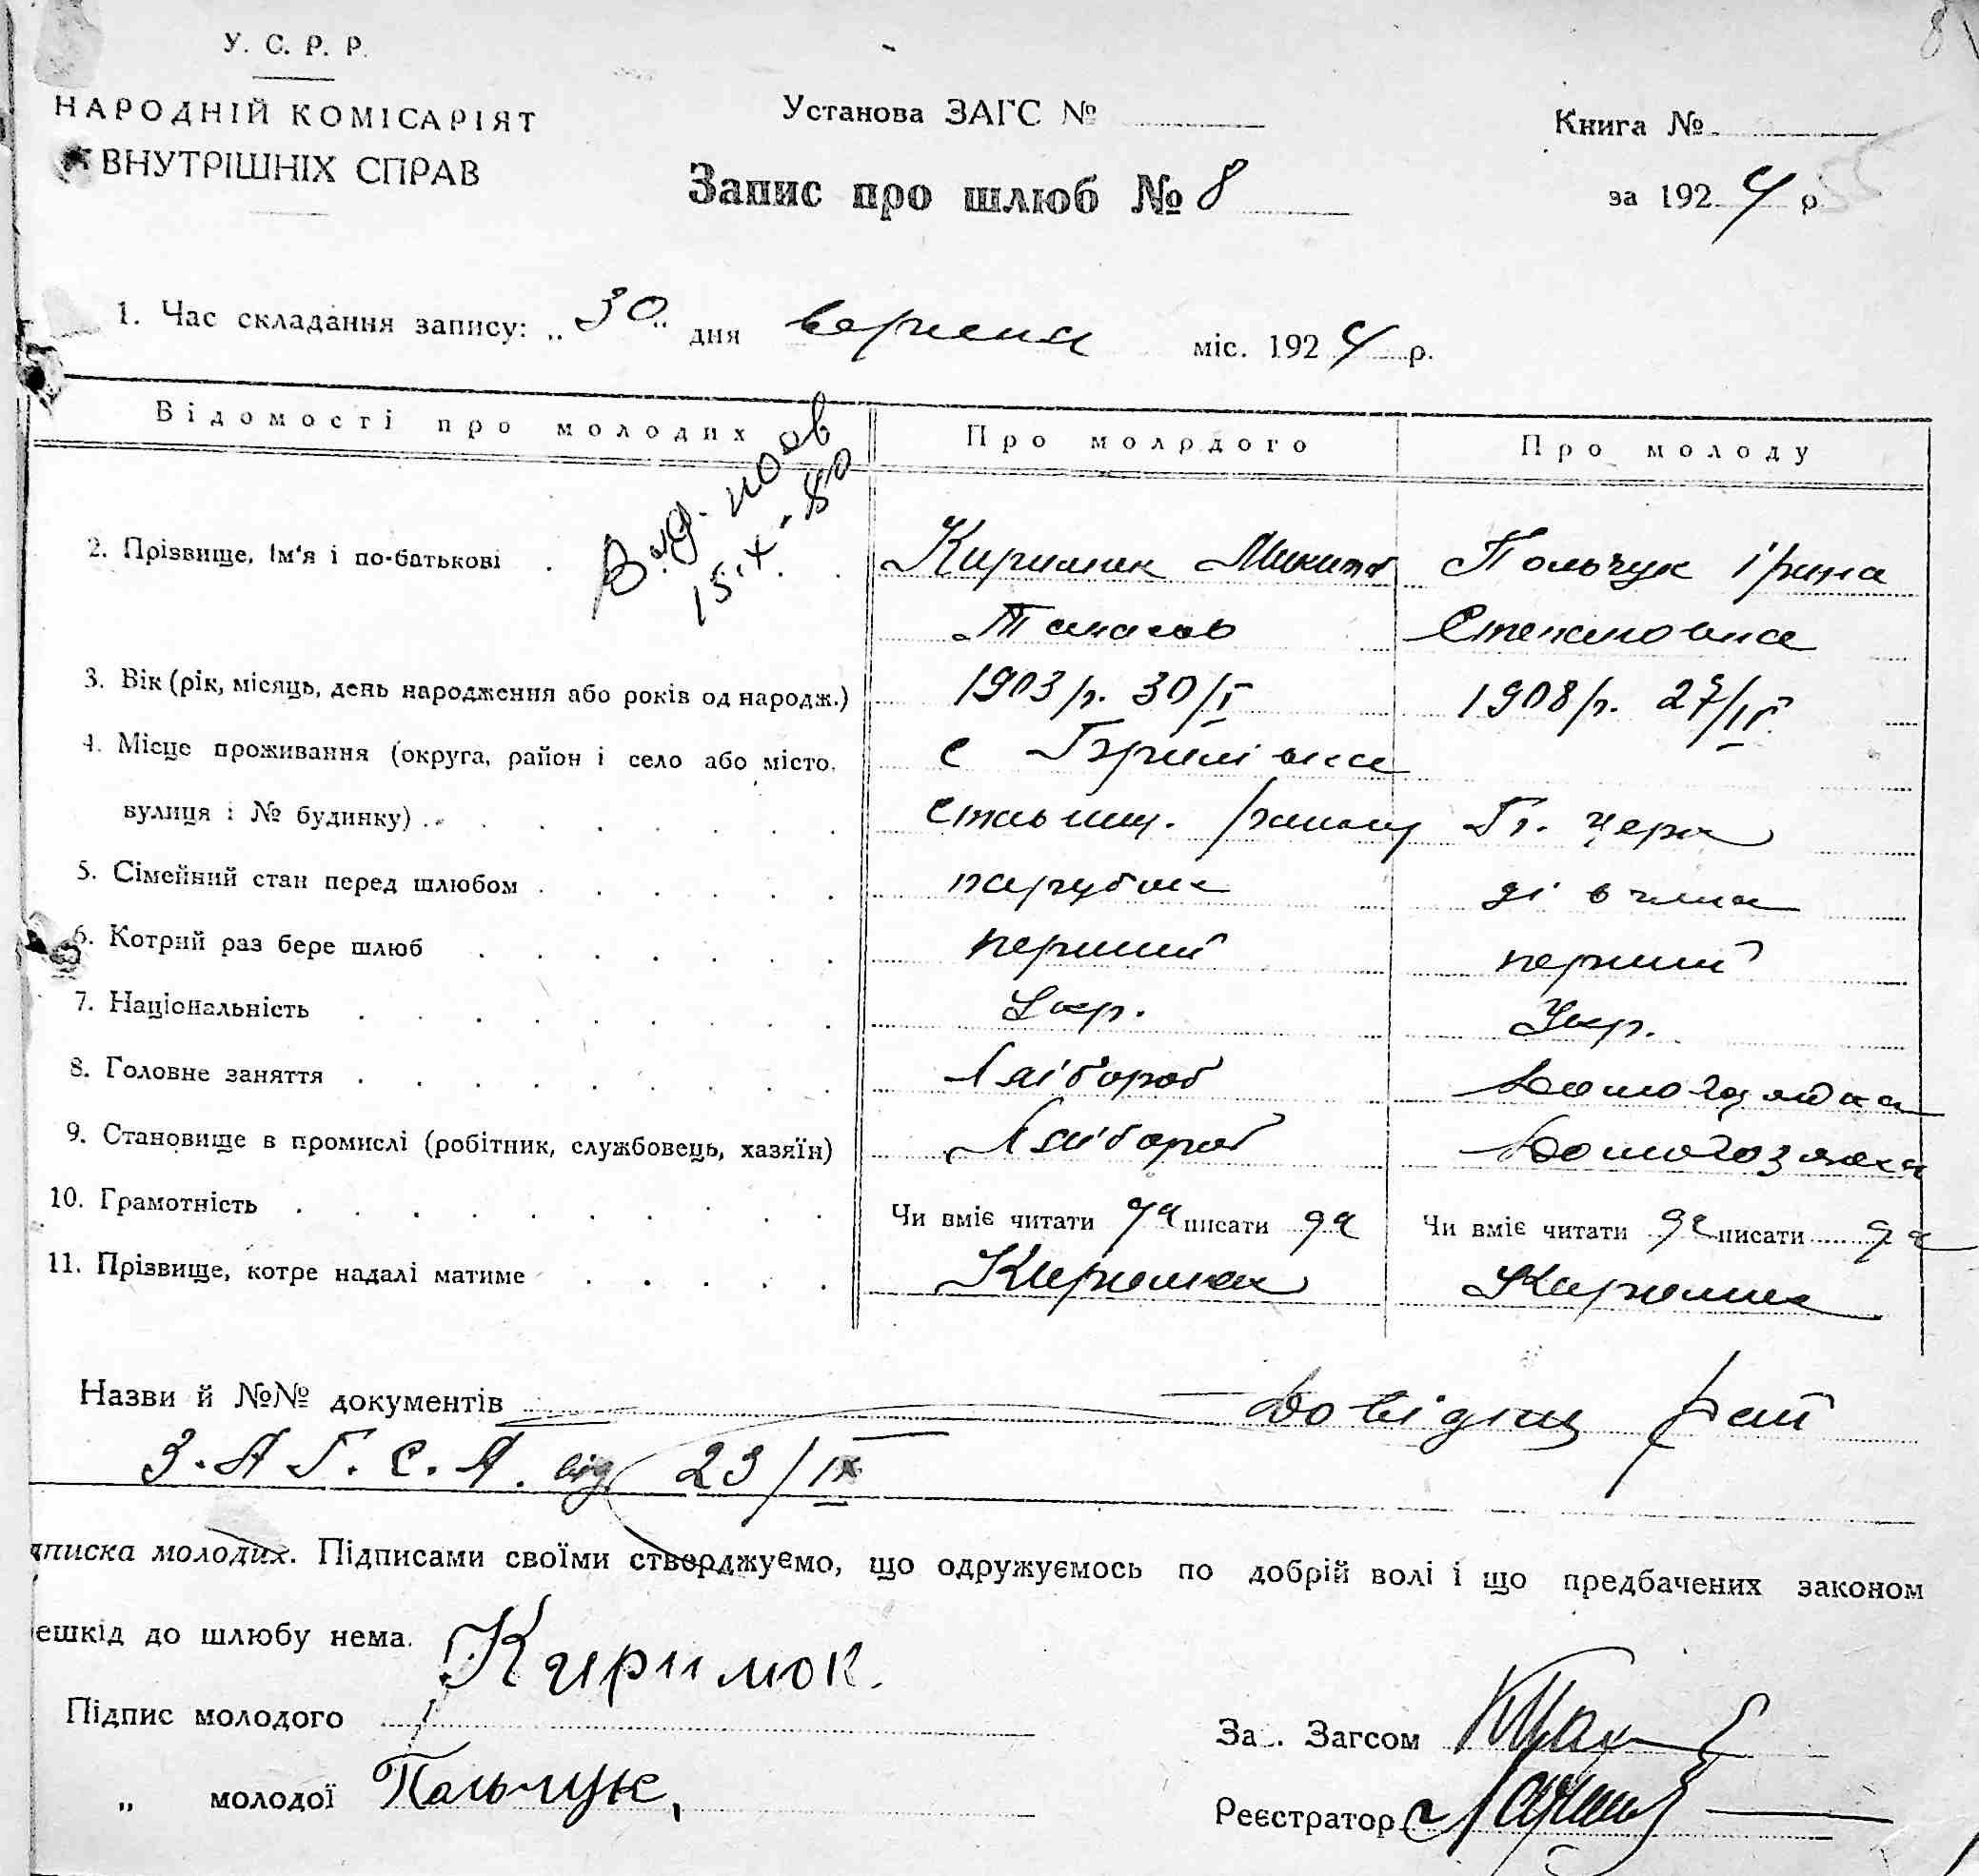 У. С. Р. Р.
НАРОДНІЙ КОМІСАРІЯТ
ВНУТРІШНІХ СПРАВ
Установа ЗАГС №
Запис про шлюб № 8
Книга №
за 1924 р
1. Час складання запису: „30" дня вересня міс. 1924 р.
Відомості про молодих
Про молодого
Про молоду
15.X.80
2. Прізвище, ім'я і по-батькові
Киримок Микита
Танасов
Польчук Ірина
Степановна
3. Вік (рік, місяць, день народження або років од народж.)
1903 р. 30/I
1908 р. 27/IV
4. Місце проживання (округа, район і село або місто, вулиця і № будинку)
с
району
5. Сімейний стан перед шлюбом
парубок
дівчина
6. Котрий раз бере шлюб
перший
перший
7. Національність
Укр.
Укр.
8. Головне заняття
Хлібороб
Домогозяйка
9. Становище в промислі (робітник, службовець, хазяїн)
Хлібороб
Домогозяйка
10. Грамотність
Чи вміє читати да писати да
Чи вміє читати да писати да
11. Прізвище, котре надалі матиме
Киримок
Киримок
Назви й №№ документів Довідки рай
З.А.Г.С.А. від 23/IX
писка молодих. Підписами своїми стверджуємо, що одружуємось по добрій волі і що предбачених законом
ешкід до шлюбу нема.
Підпис молодого Киримок.
„ молодої Польчук,
За . Загсом
Реєстратор